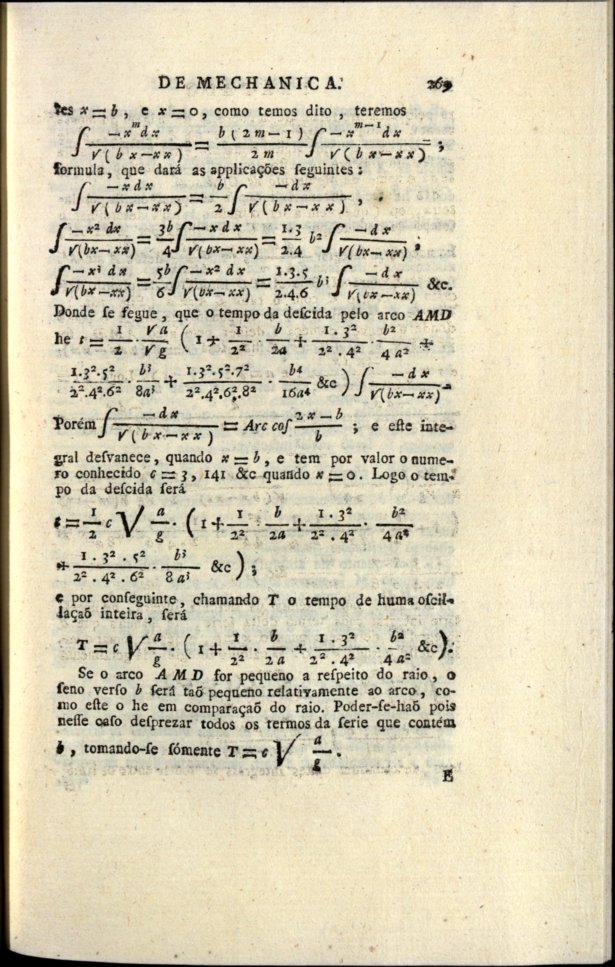 DE MECHANICA. 269
tes x = b, e x = 0, como temos dito, teremos
∫ −x^m dx / √(bx−xx) = b(2m−1) / 2m ∫ −x^{m−1} dx / √(bx−xx) ;
formula, que dará as applicações ſeguintes :
∫ −xdx / √(bx−xx) = b/2 ∫ −dx / √(bx−xx) ,
∫ −x² dx / √(bx−xx) = 3b/4 ∫ −x dx / √(bx−xx) = 1.3 / 2.4 b² ∫ −dx / √(bx−xx) ,
∫ −x³ dx / √(bx−xx) = 5b/6 ∫ −x² dx / √(bx−xx) = 1.3.5 / 2.4.6 b³ ∫ −dx / √(bx−xx) &c.
Donde ſe ſegue, que o tempo da deſcida pelo arco AMD
he t = 1/2 . √a / √g ( 1 + 1/2² . b/2a + 1.3² / 2².4² . b² / 4a² +
1.3².5² / 2².4².6² . b³ / 8a³ + 1.3².5².7² / 2².4².6².8² . b⁴ / 16a⁴ &c ) ∫ −dx / √(bx−xx) .
Porém ∫ −dx / √(bx−xx) = Arc coſ 2x−b / b ; e eſte inte-
gral deſvanece, quando x = b, e tem por valor o nume-
ro conhecido c = 3, 141 &c quando x = 0. Logo o tem-
po da deſcida ſerá
t = 1/2 c √ a/g . ( 1 + 1/2² . b/2a + 1.3² / 2².4² . b² / 4a²
+ 1.3².5² / 2².4².6² . b³ / 8a³ &c ) ;
e por conſeguinte, chamando T o tempo de huma oſcil-
laçaõ inteira, ſerá
T = c √ a/g . ( 1 + 1/2² . b/2a + 1.3² / 2².4² . b² / 4a² &c ) .
Se o arco AMD for pequeno a reſpeito do raio, o
ſeno verſo b ſerá taõ pequeno relativamente ao arco, co-
mo eſte o he em comparaçaõ do raio. Poder-ſe-haõ pois
neſſe caſo deſprezar todos os termos da ſerie que contém
b, tomando-ſe ſómente T = c √ a/g .
E